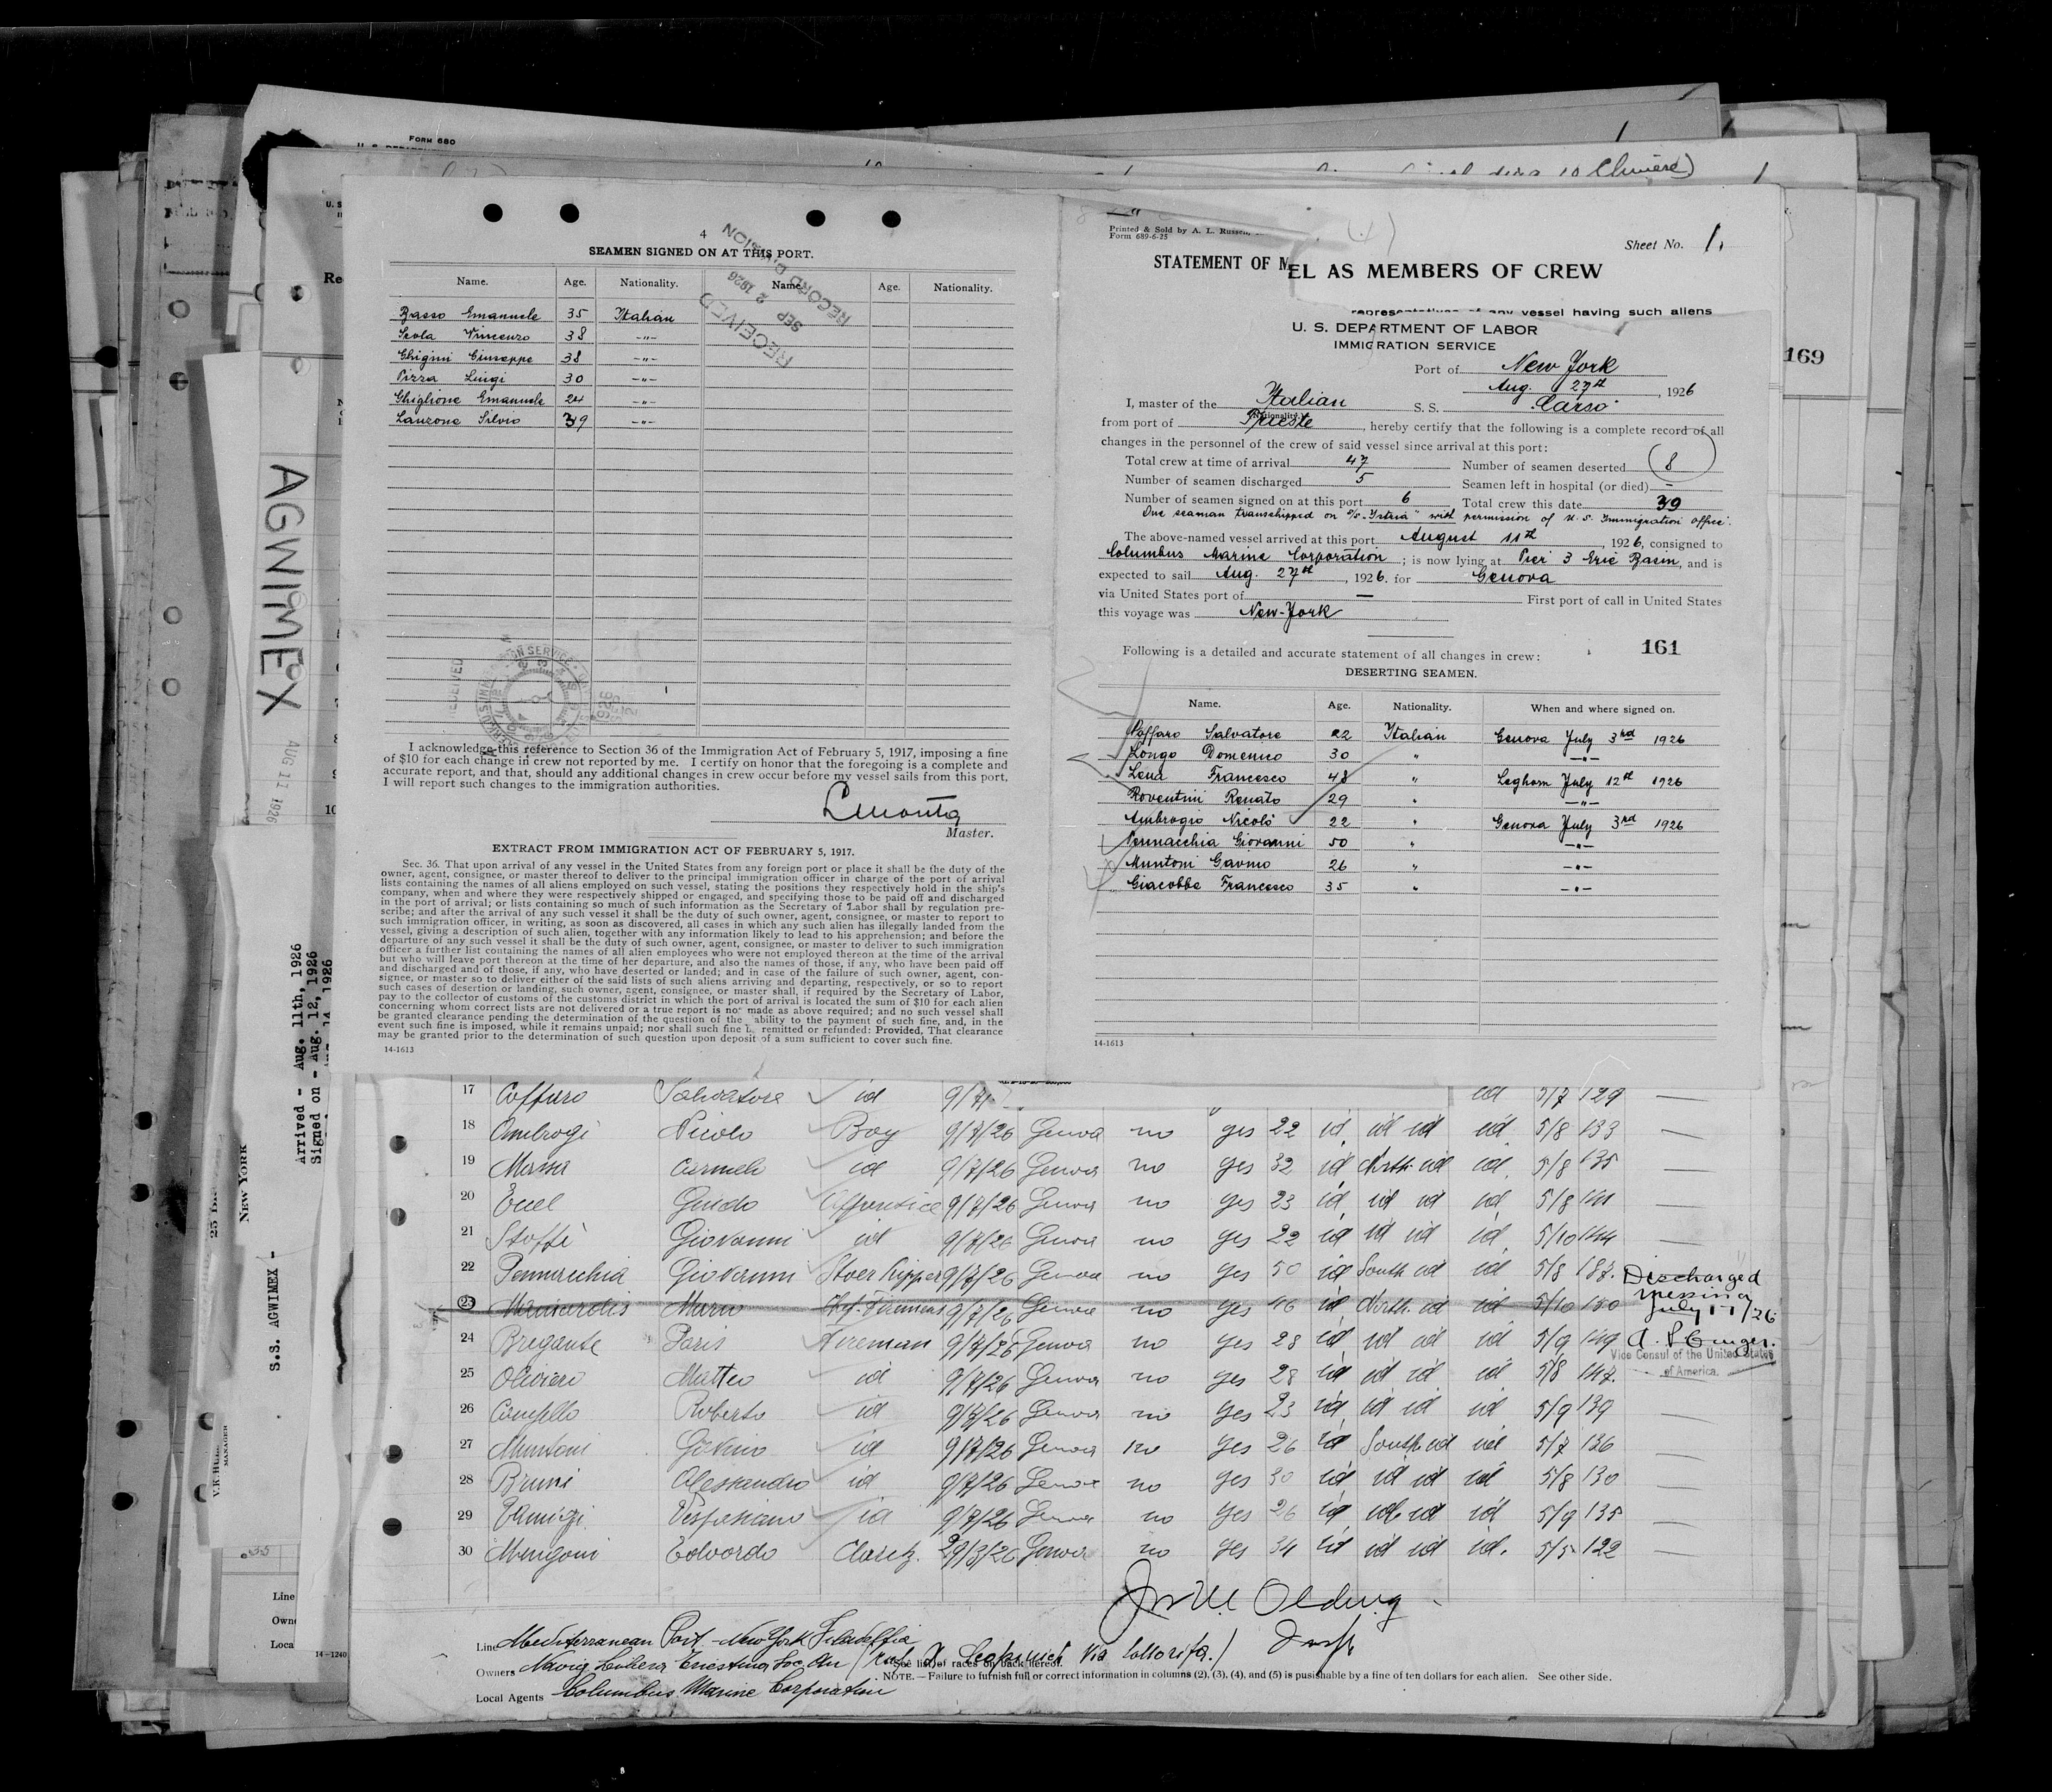 FORM 680
4
SEAMEN SIGNED ON AT THIS PORT.
Name. Age. Nationality. Name. Age. Nationality.
Basso Emanuele 35 Italian
Scola Vincenzo 38 -"-
Ghigini Giuseppe 38 -"-
Pizza Luigi 30 -"-
Ghiglione Emanuele 24 -"-
Lauzone Silvio 39 -"-
RECEIVED
SEP 2 1926
RECORD DIVISION
I acknowledge this reference to Section 36 of the Immigration Act of February 5, 1917, imposing a fine
of $10 for each change in crew not reported by me. I certify on honor that the foregoing is a complete and
accurate report, and that, should any additional changes in crew occur before my vessel sails from this port,
I will report such changes to the immigration authorities.
Master.
EXTRACT FROM IMMIGRATION ACT OF FEBRUARY 5, 1917.
Sec. 36. That upon arrival of any vessel in the United States from any foreign port or place it shall be the duty of the
owner, agent, consignee, or master thereof to deliver to the principal immigration officer in charge of the port of arrival
lists containing the names of all aliens employed on such vessel, stating the positions they respectively hold in the ship's
company, when and where they were respectively shipped or engaged, and specifying those to be paid off and discharged
in the port of arrival; or lists containing so much of such information as the Secretary of Labor shall by regulation pre-
scribe; and after the arrival of any such vessel it shall be the duty of such owner, agent, consignee, or master to report to
such immigration officer, in writing, as soon as discovered, all cases in which any such alien has illegally landed from the
vessel, giving a description of such alien, together with any information likely to lead to his apprehension; and before the
departure of any such vessel it shall be the duty of such owner, agent, consignee, or master to deliver to such immigration
officer a further list containing the names of all alien employees who were not employed thereon at the time of the arrival
but who will leave port thereon at the time of her departure, and also the names of those, if any, who have been paid off
and discharged and of those, if any, who have deserted or landed; and in case of the failure of such owner, agent, con-
signee, or master so to deliver either of the said lists of such aliens arriving and departing, respectively, or so to report
such cases of desertion or landing, such owner, agent, consignee, or master shall, if required by the Secretary of Labor,
pay to the collector of customs of the customs district in which the port of arrival is located the sum of $10 for each alien
concerning whom correct lists are not delivered or a true report is not made as above required; and no such vessel shall
be granted clearance pending the determination of the question of the ability to the payment of such fine, and, in the
event such fine is imposed, while it remains unpaid; nor shall such fine remitted or refunded: Provided, That clearance
may be granted prior to the determination of such question upon deposit of a sum sufficient to cover such fine.
14-1613
Printed & Sold by A. L. Russell,
Form 689-6-25
Sheet No. 1.
STATEMENT OF M
EL AS MEMBERS OF CREW
representatives of any vessel having such aliens
U. S. DEPARTMENT OF LABOR
IMMIGRATION SERVICE
Port of New York
Aug. 27th, 1926
I, master of the Italian S. S. "Carso"
(Nationality.)
from port of Trieste, hereby certify that the following is a complete record of all
changes in the personnel of the crew of said vessel since arrival at this port:
Total crew at time of arrival 47 Number of seamen deserted 8
Number of seamen discharged 5 Seamen left in hospital (or died) -
Number of seamen signed on at this port 6 Total crew this date 39
One seaman transshipped on S/S "Istria" with permission of U.S. Immigration office.
The above-named vessel arrived at this port August 11th, 1926, consigned to
Columbus Marine Corporation; is now lying at Pier 3 Erie Basin, and is
expected to sail Aug. 27th, 1926, for Genova
via United States port of — First port of call in United States
this voyage was New-York
161
Following is a detailed and accurate statement of all changes in crew:
DESERTING SEAMEN.
Name. Age. Nationality. When and where signed on.
Coffaro Salvatore 22 Italian Genova July 3rd 1926
Longo Domenico 30 " -"-
Lena Francesco 48 " Leghorn July 12th 1926
Roventini Renato 29 " -"-
Ambrogio Nicolò 22 " Genova July 3rd 1926
Pennacchia Giovanni 50 " -"-
Muntoni Gavino 26 " -"-
Giacobbe Francesco 35 " -"-
14-1613
169
AGWIMEX
AUG 11 1926
Arrived - Aug. 11th, 1926
Signed on - Aug. 12, 1926
S.S. AGWIMEX -
NEW YORK
MANAGER
17 Coffaro Salvatore id 9/7/ id 5/7 129 —
18 Ambrogi Nicolo Boy 9/7/26 Genova no yes 22 id id id id 5/8 133 —
19 Massa Carmelo id 9/7/26 Genova no yes 32 id North id id 5/8 135 —
20 Guido Apprentice 9/7/26 Genova no yes 23 id id id id 5/8 141 —
21 Stoffè Giovanni id 9/7/26 Genova no yes 22 id id id id 5/10 144 —
22 Pennacchia Giovanni 9/7/26 Genova no yes 50 id South id id 5/8 187.
23 Mainardis Mario 9/7/26 Genova no yes 46 id North id id 5/10 150
24 Bregante Paris Fireman 9/7/26 Genova no yes 28 id id id id 5/9 149
25 Olivieri Matteo id 9/7/26 Genova no yes 28 id id id id 5/8 147.
26 Roberto id 9/7/26 Genova no yes 23 id id id id 5/9 139 —
27 Muntoni Gavino id 9/7/26 Genova no yes 26 id South id id 5/7 136 —
28 Bruni Alessandro id 9/7/26 Genova no yes 30 id id id id 5/8 130 —
29 Vespasiano id 9/7/26 Genova no yes 26 id id id id 5/9 135 —
30 Mengoni Edoardo 29/3/26 Genova no yes 34 id id id id. 5/5 122 —
Discharged
Messina
July 17/26
Vice Consul of the United States
of America.
Line Mediterranean Port - New York Filadelfia
Owners Navig Libera Triestina Soc An
See list of races on back hereof.
NOTE. – Failure to furnish full or correct information in columns (2), (3), (4), and (5) is punishable by a fine of ten dollars for each alien. See other side.
Local Agents Columbus Marine Corporation
Line
Owne
Loca
14-1240
8